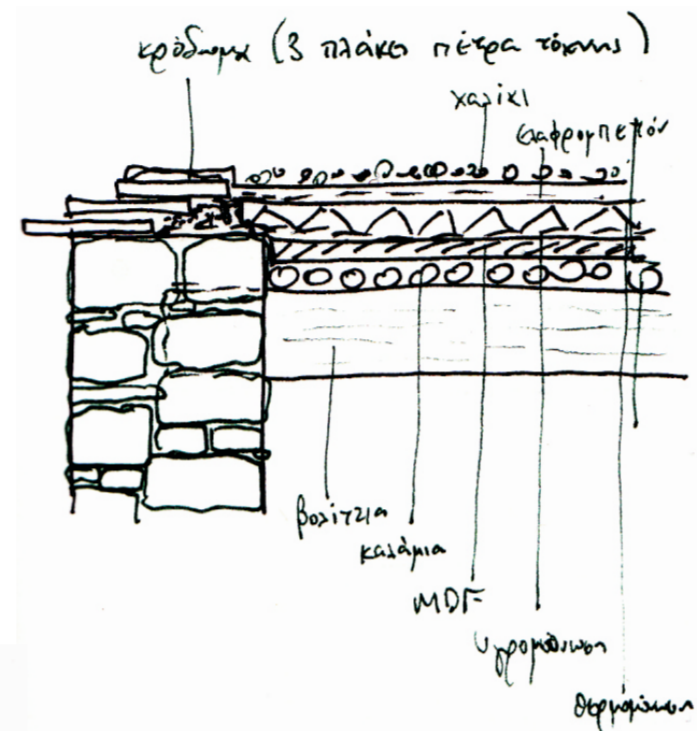 κρόδωμα (3 πλάκες πέτρα τόχνης)
χαλίκι
ελαφρομπετόν
βολίτζια
καλάμια
MDF
υγρομόνωση
θερμομόνωση